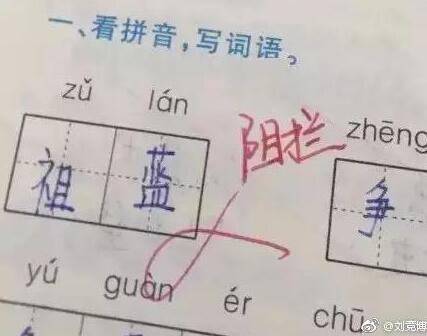 一、看拼音,写词语。
zǔ lán zhēng
祖蓝 阻拦 争
yú guàn ér chū
@刘竞博